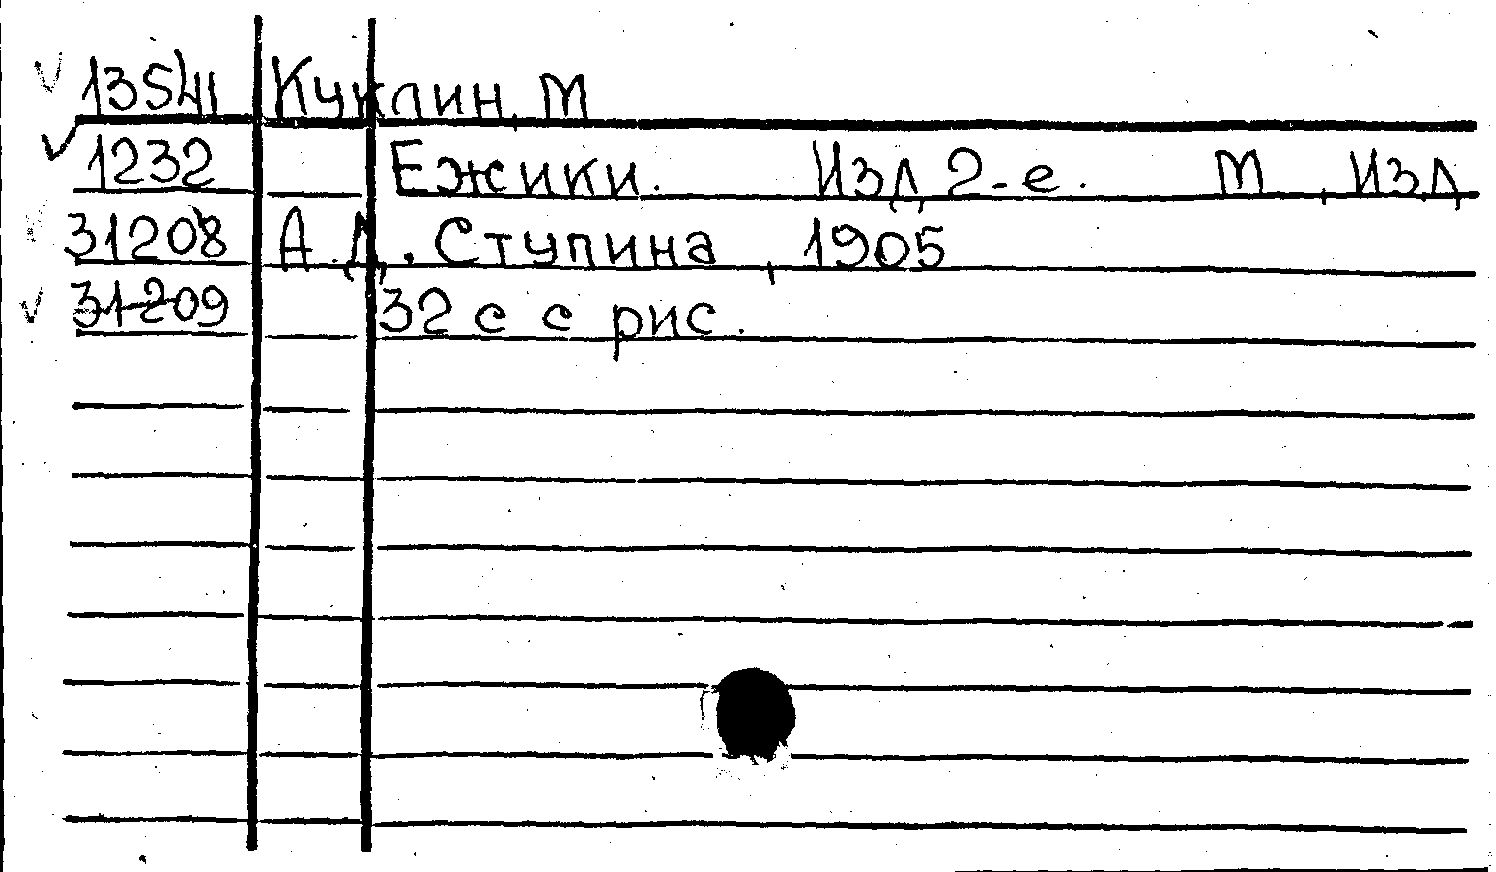 13541 Куклин, М
1232 Ежики. Изд 2-е. М, Изд
31208 А.Д. Ступина, 1905
31209 32 с с рис.